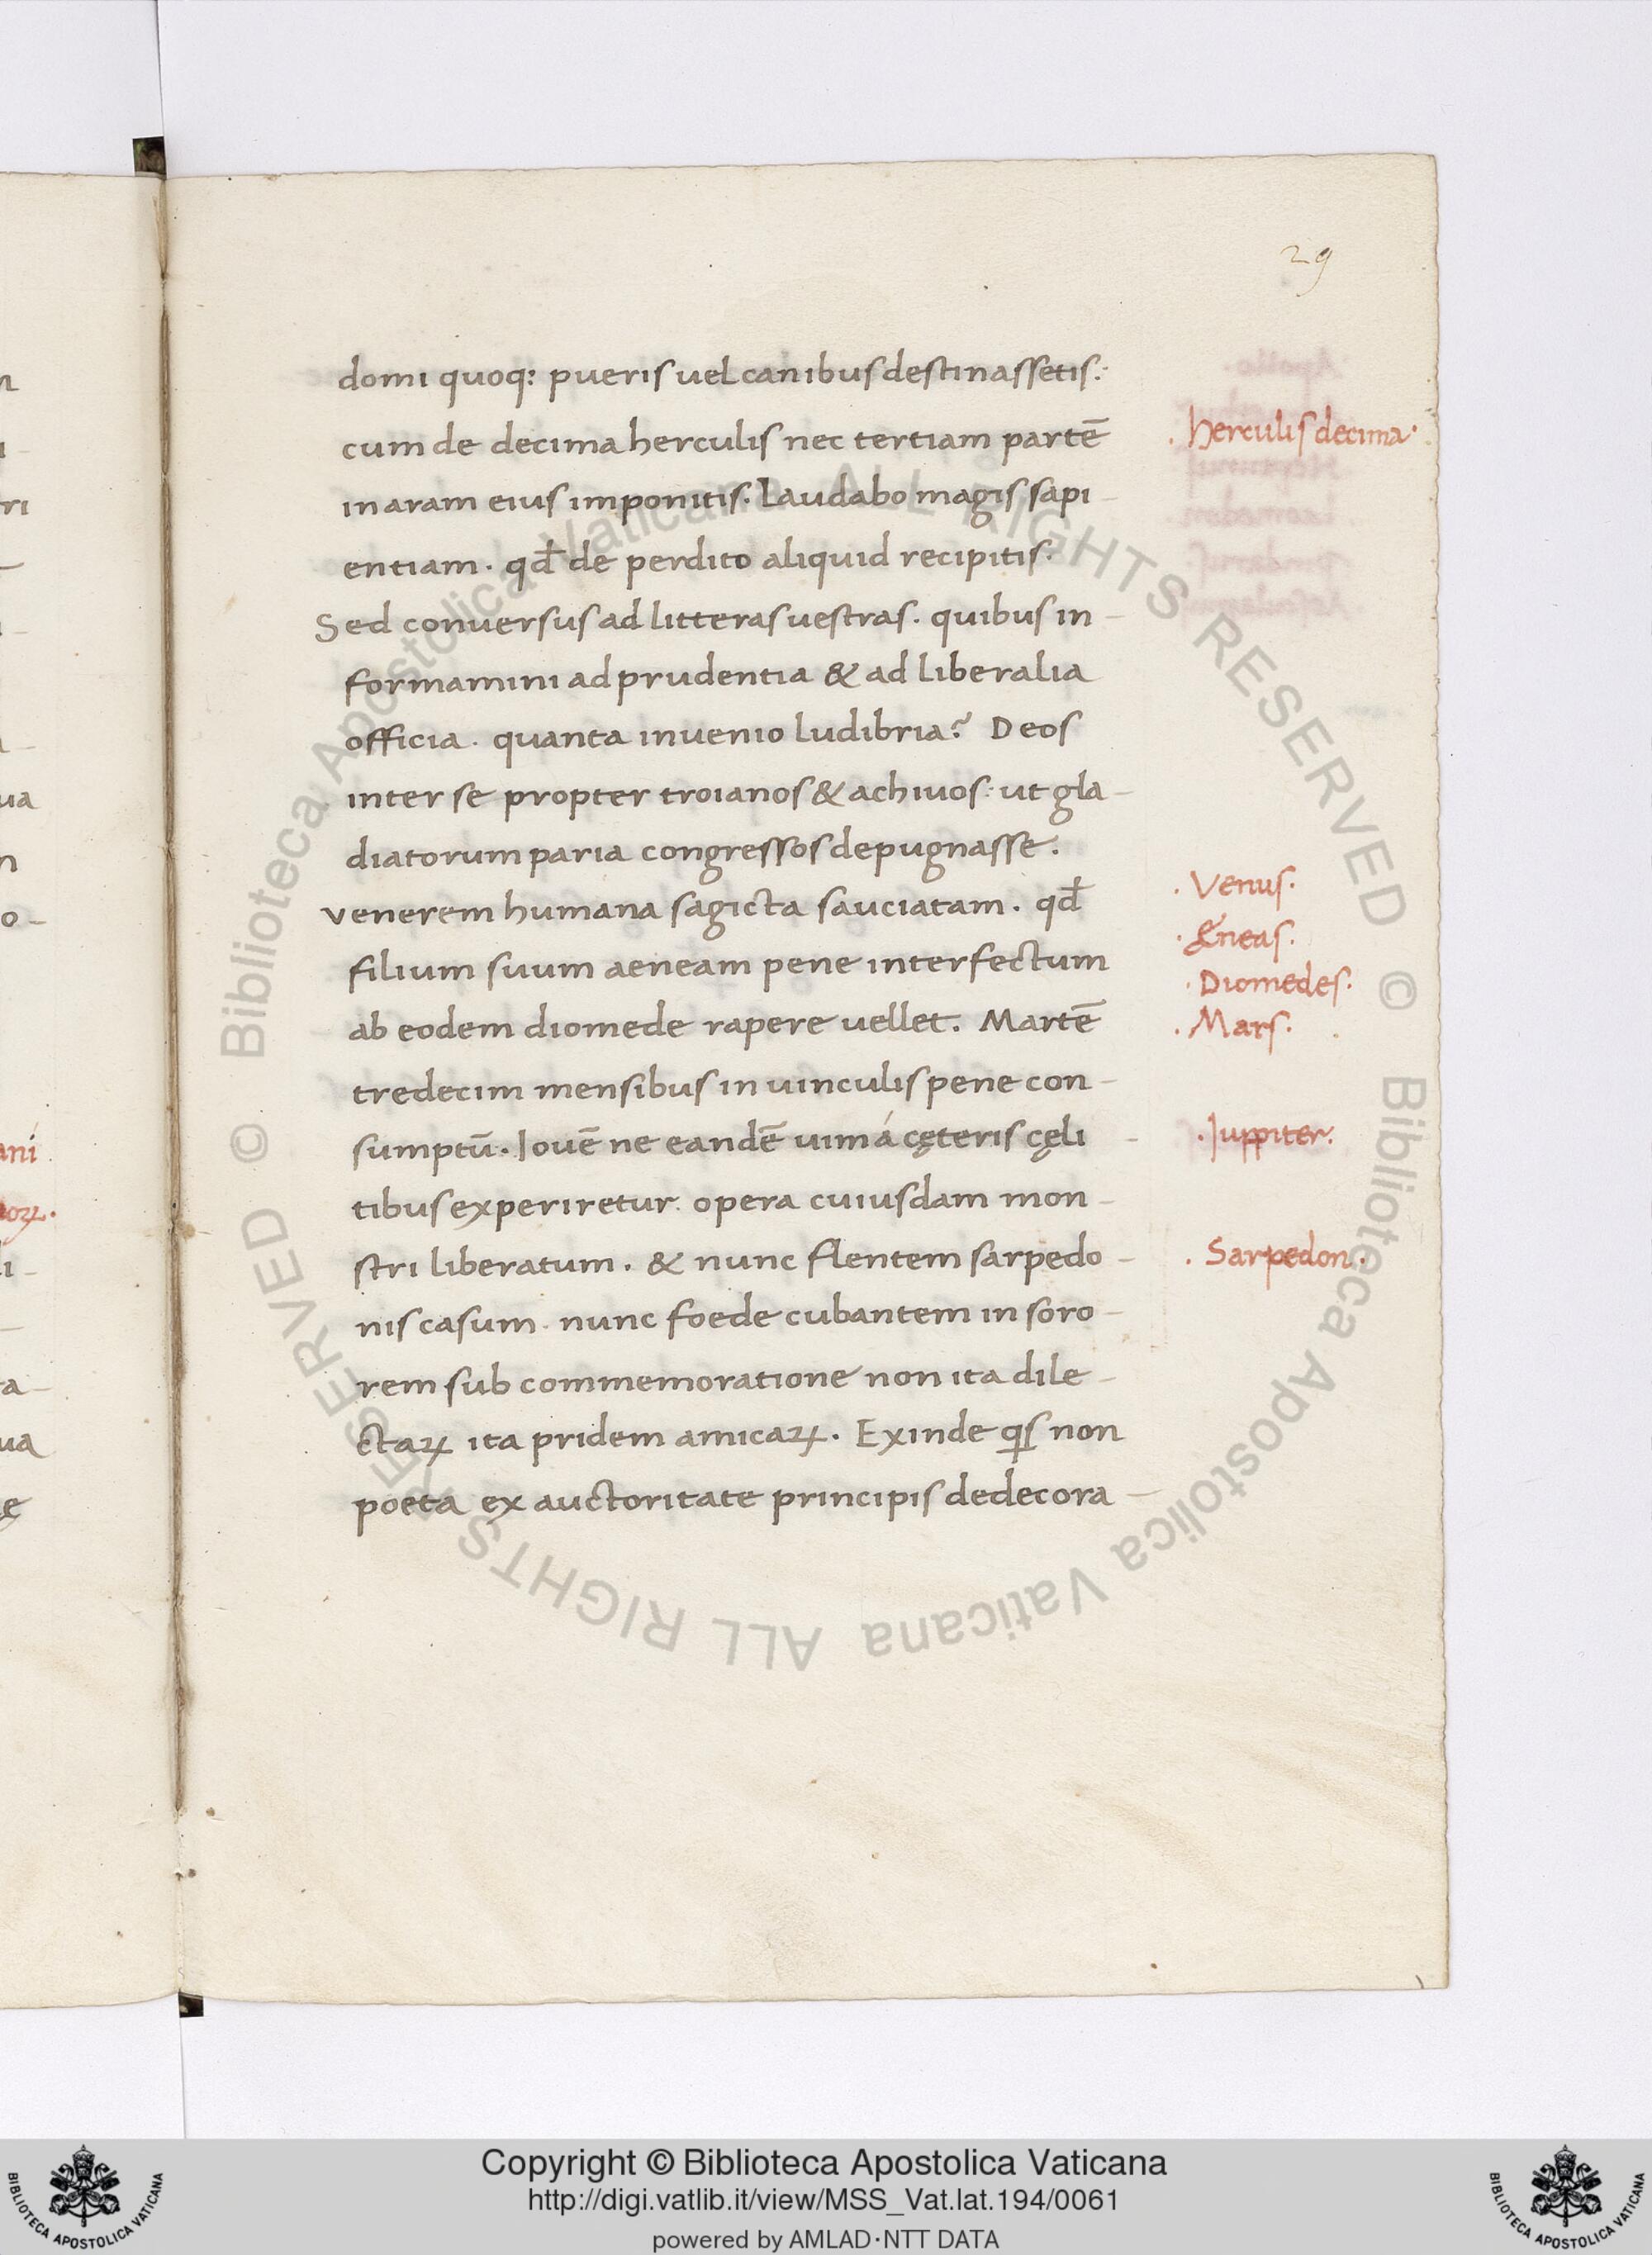 29
domi quoq: pueris uel canibus destinassetis:·
cum de decima herculis nec tertiam partē
in aram eius imponitis. Laudabo magis sapi
entiam . qđ de perdito aliquid recipitis.
Sed conuersus ad litteras uestras. quibus in-
formamini ad prudentia & ad liberalia
officia . quanta inuenio ludibria? Deos
inter se propter troianos & achiuos: ut gla-
diatorum paria congressos depugnasse.
venerem humana sagicta sauciatam . qđ
filium suum aeneam pene interfectum
ab eodem diomede rapere uellet. Martē
tredecim mensibus in uinculis pene con-
sumptū. Iouē ne eandē uim á cęteris cęli-
tibus experiretur. opera cuiusdam mon-
stri liberatum . & nunc flentem sarpedo-
nis casum . nunc foede cubantem in soro-
rem sub commemoratione non ita dile-
ctaꝝ ita pridem amicaꝝ. Exinde qͥs non
poeta ex auctoritate principis dedecora-
. herculis decima·
. Venus.
· Ęneas.
· Diomedes.
. Mars.
. Iuppiter.
. Sarpedon.
© Biblioteca Apostolica Vaticana ALL RIGHTS RESERVED © Biblioteca Apostolica Vaticana ALL RIGHTS RESERVED
Copyright © Biblioteca Apostolica Vaticana
http://digi.vatlib.it/view/MSS_Vat.lat.194/0061
powered by AMLAD·NTT DATA
BIBLIOTECA APOSTOLICA VATICANA
BIBLIOTECA APOSTOLICA VATICANA